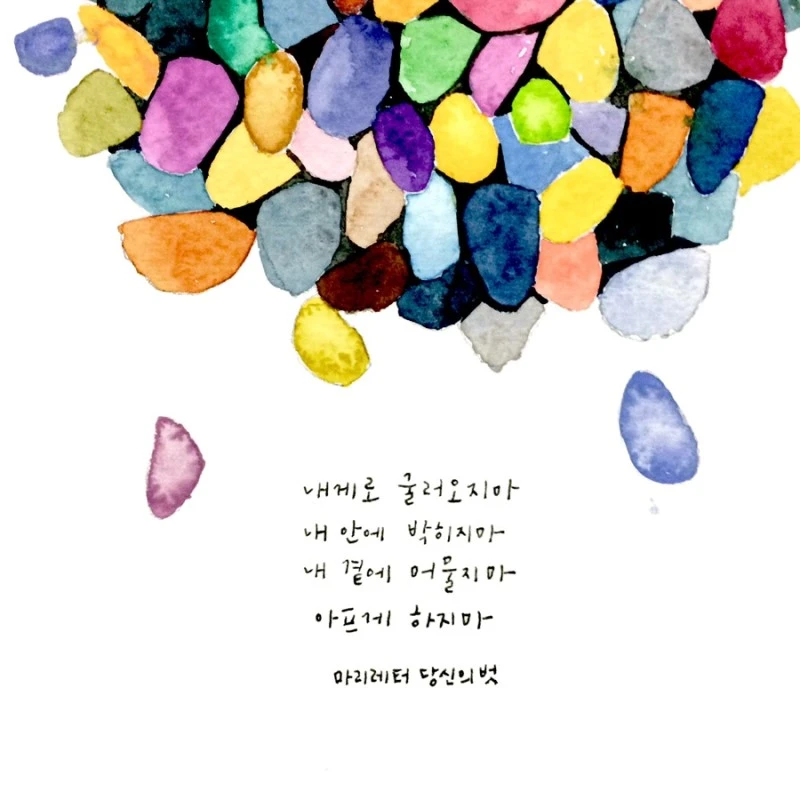 내게로 굴러오지마
내 안에 박히지마
내 곁에 머물지마
아프게 하지마
마리레터 당신의벗